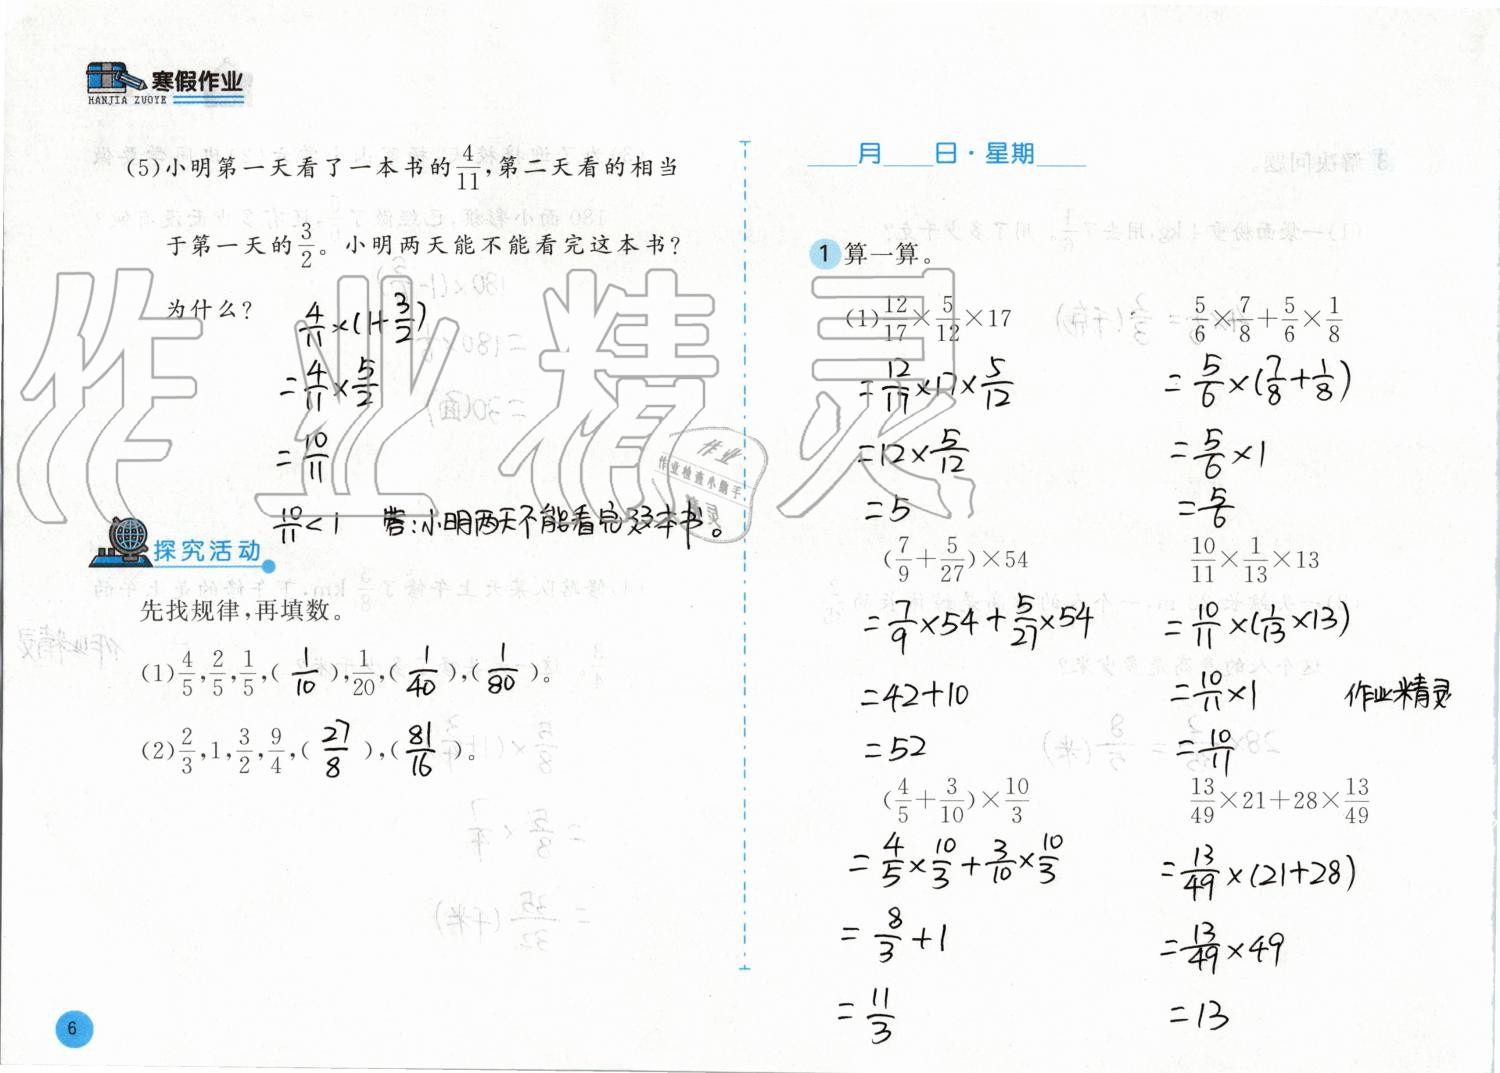 寒假作业
HANJIA ZUOYE
(5)小明第一天看了一本书的4/11,第二天看的相当
于第一天的3/2。小明两天能不能看完这本书?
为什么?
4/11×(1+3/2)
=4/11×5/2
=10/11
10/11<1 答:小明两天不能看完这本书。
探究活动
先找规律,再填数。
(1)4/5,2/5,1/5,(1/10),1/20,(1/40),(1/80)。
(2)2/3,1,3/2,9/4,(27/8),(81/16)。
6
月 日·星期
1 算一算。
(1)12/17×5/12×17
=12/17×17×5/12
=12×5/12
=5
5/6×7/8+5/6×1/8
=5/6×(7/8+1/8)
=5/6×1
=5/6
(7/9+5/27)×54
=7/9×54+5/27×54
=42+10
=52
10/11×1/13×13
=10/11×(1/13×13)
=10/11×1
=10/11
作业精灵
(4/5+3/10)×10/3
=4/5×10/3+3/10×10/3
=8/3+1
=11/3
13/49×21+28×13/49
=13/49×(21+28)
=13/49×49
=13
作业精灵
作业
作业检查小助手
精灵